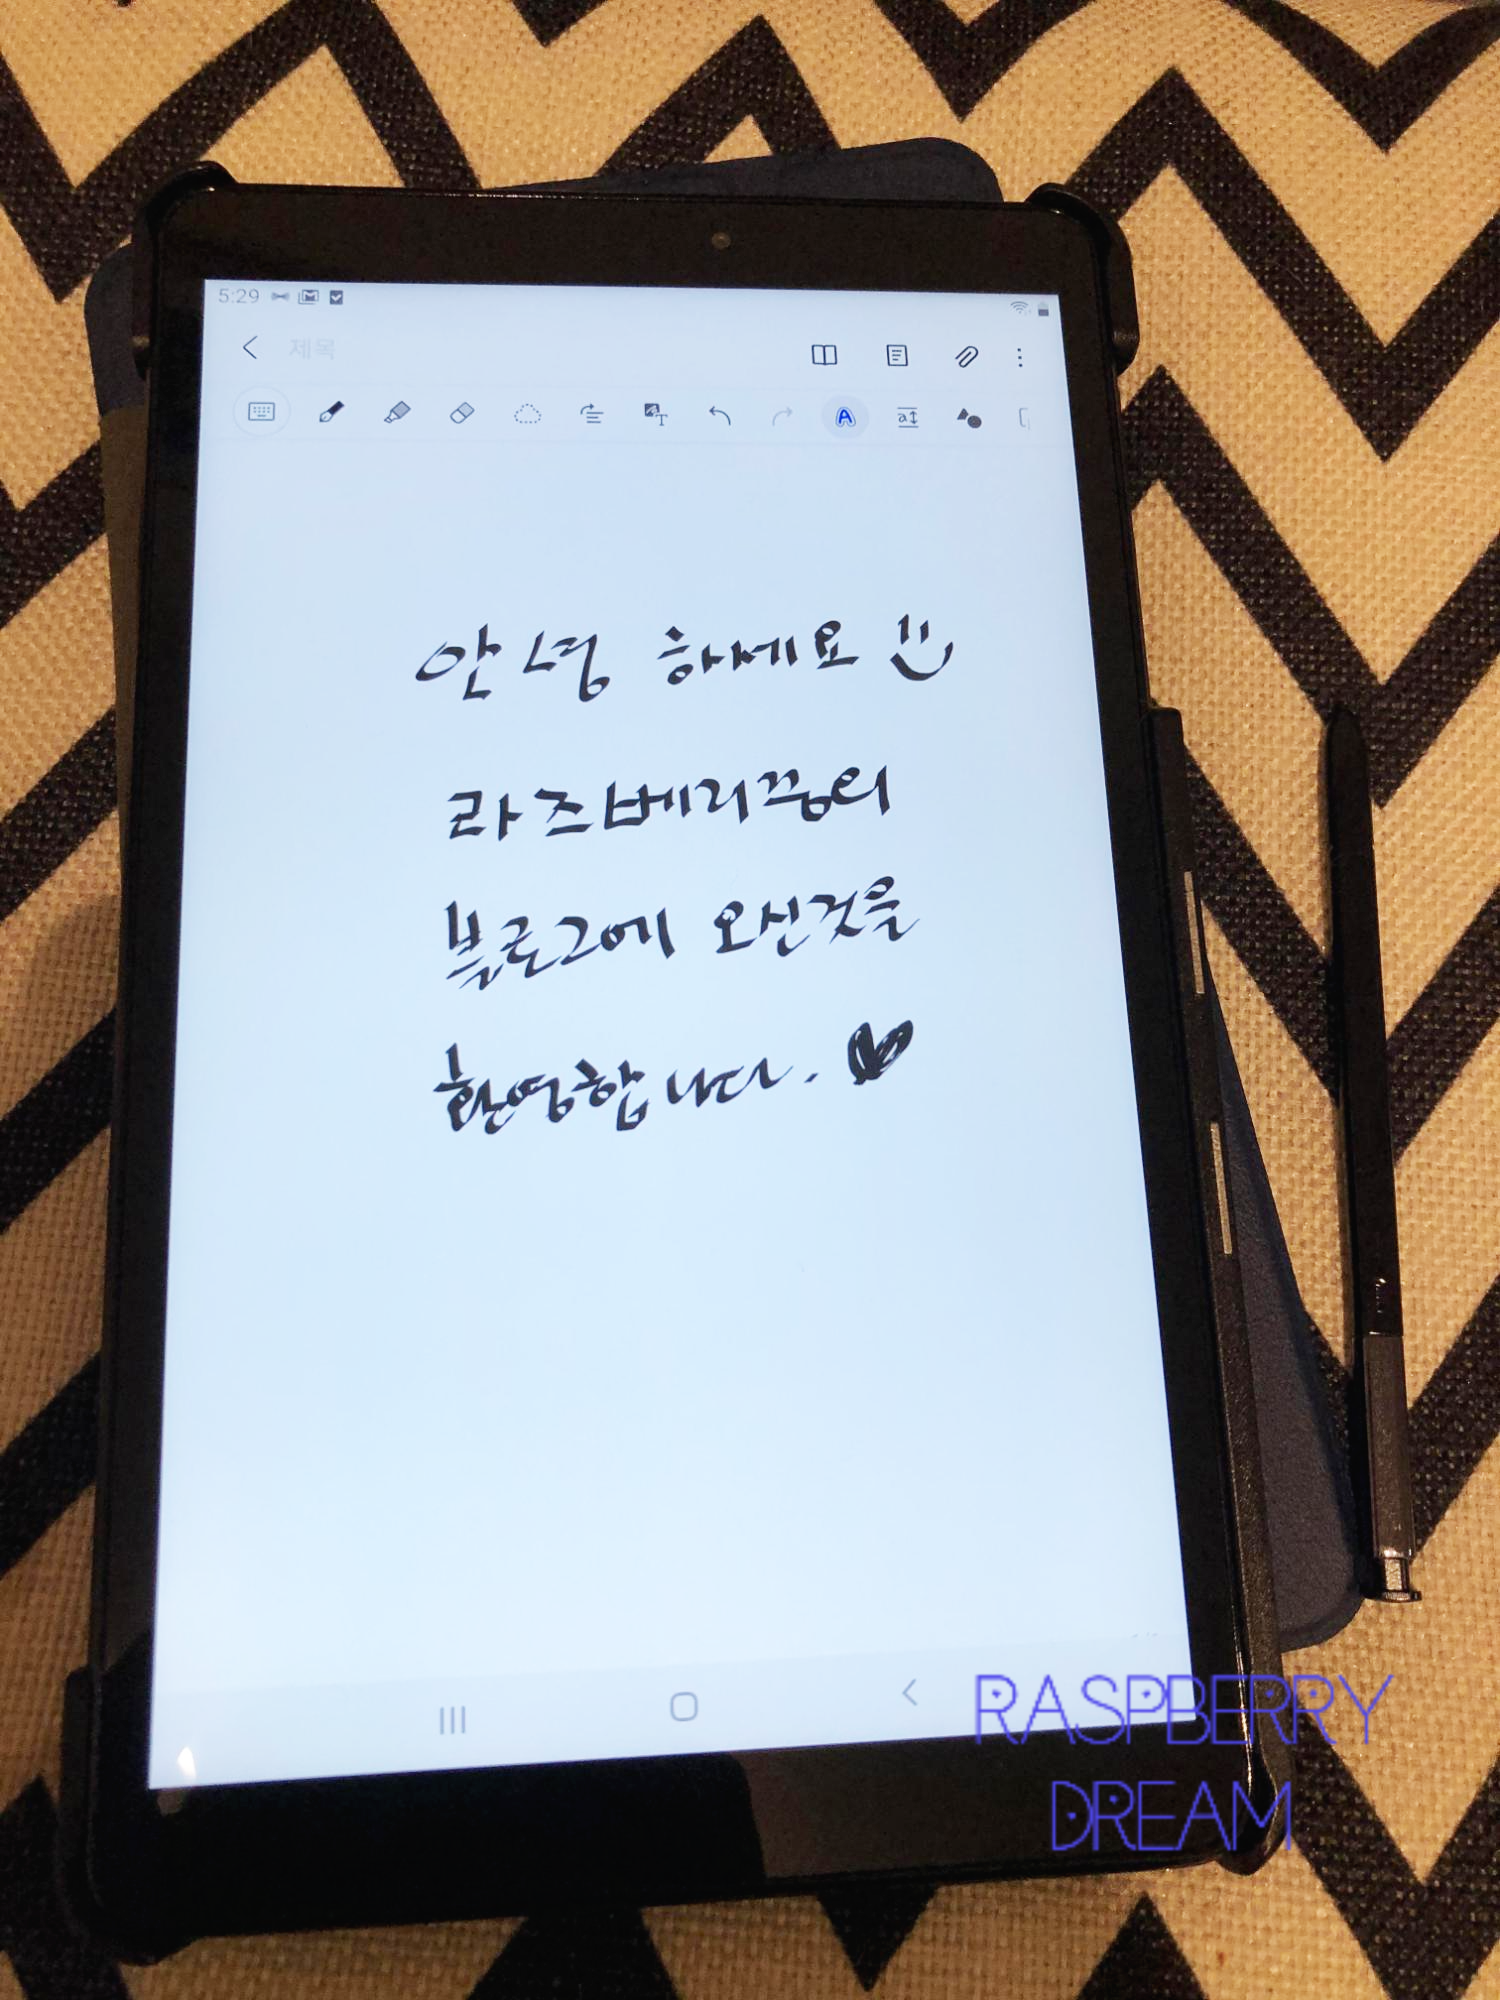 5:29
제목
안녕 하세요
라즈베리꿍의
블로그에 오신것을
환영합니다.
RASPBERRY
DREAM